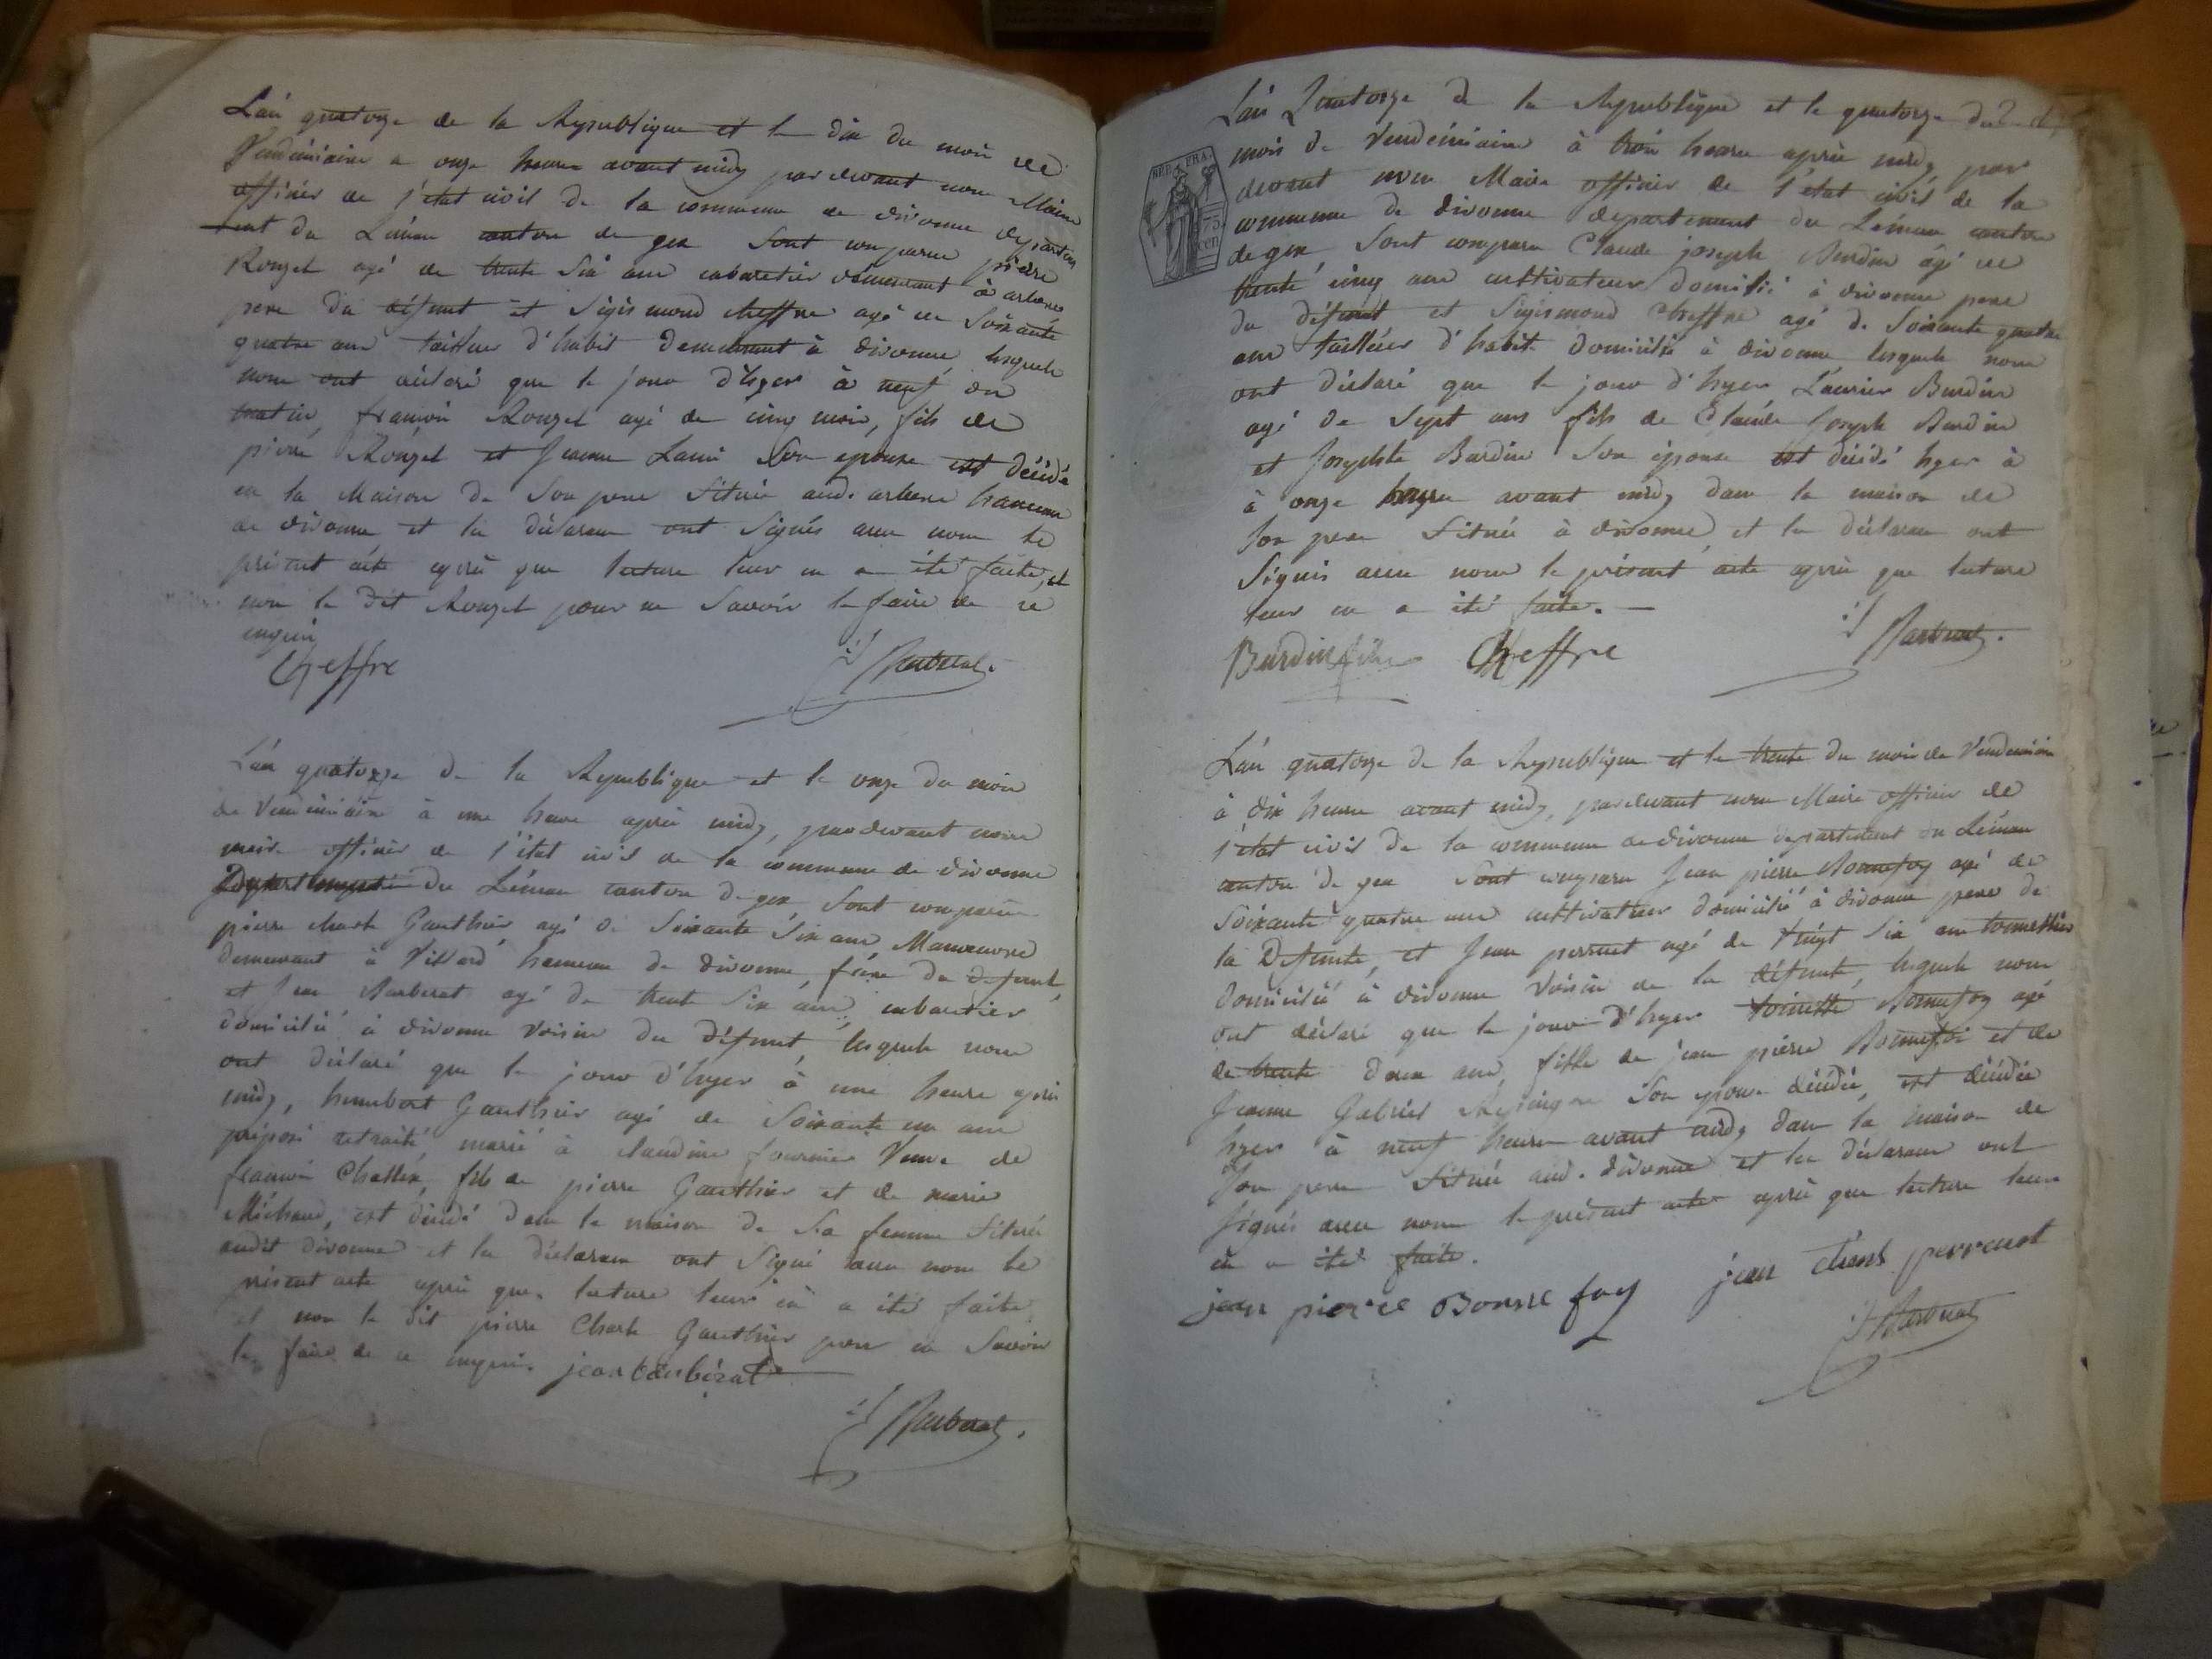 L'an quatorze de la Republique et le dix du mois de
Vendémiaire a onze heures avant midy par devant nous Maire
officier de l'état civil de la commune de divonne departem
ent du Léman canton de gex sont comparus pierre
Rouzet agé de trente six ans cabaretier demeurant à arbere
pere du défunt et Sigismond cheffre agé de soixante
quatre ans tailleur d'habit demeurant à divonne lesquels
nous ont déclaré que le jour d'hyer à neuf du
matin, françois Rouzet agé de cinq mois, fils de
pierre Rouzet et Jeanne Lami son epouse est décédé
en la Maison de son pere située aud. arbere hameau
de divonne et les déclarans ont signés avec nous le
présent acte après que lecture leur en a été faite, et
non le dit Rouzet pour ne savoir le faire de ce
enquis
Cheffre
Barberat.
L'an quatorze de la Republique et le onze du mois
de Vendémiaire à une heure après midy, par devant nous
maire officier de l'état civil de la commune de divonne
Departement du Léman canton de gex sont comparus
pierre charle Gauthier agé de soixante six ans Manoeuvre
demeurant à Villard hameau de divonne, frère du défunt,
et Jean Barberat agé de trente six ans, cabaretier
domicilié à divonne voisin du défunt, lesquels nous
ont déclaré que le jour d'hyer à une heure après
midy, humbert Gauthier agé de soixante un ans
préposé retraité marié à claudine fournier Veuve de
françois Challex, fils de pierre Gauthier et de marie
Michaud, est décédé dans la maison de sa femme située
audit divonne et les déclarans ont signé avec nous le
présent acte après que lecture leur en a été faite,
et non le dit pierre Charle Gauthier pour ne savoir
le faire de ce enquis. jean barbérat
Barberat.
L'an Quatorze de la Republique et le quatorze du
mois de Vendémiaire à trois heures après midy par
devant nous Maire officier de l'état civil de la
commune de divonne departement du Léman canton
de gex, sont comparu Claude joseph Burdin agé de
trente cinq ans cultivateur domicilié à divonne pere
du défunt et Sigismond cheffre agé de soixante quatre
ans tailleur d'habit domicilié à divonne lesquels nous
ont déclaré que le jour d'hyer Laurier Burdin
agé de sept ans fils de Claude Joseph Burdin
et Josephte Burdin son épouse est décédé hyer à
à onze heures avant midy dans la maison de
son pere située à divonne et les déclarans ont
signés avec nous le présent acte après que lecture
leur en a été faite.
REP. FRA.
75
CEN
Burdin Cheffre
Barberat.
L'an quatorze de la Republique et le trente du mois de Vendémiaire
à dix heures avant midy, par devant nous Maire officier de
l'état civil de la commune de divonne departement du Léman
canton de gex sont comparu Jean pierre Bonnefoy agé de
soixante quatre ans cultivateur domicilié à divonne pere de
la Defunte, et Jean perruet agé de vingt six ans
domicilié à divonne voisin de la défunte, lesquels nous
ont déclaré que le jour d'hyer toinette Bonnefoy agé
de trente deux ans, fille de jean pierre Bonnefoi et de
Jeanne Gabriel son epouse décédée, est décédée
hyer à neuf heures avant midy dans la maison de
son pere située aud. divonne et les déclarans ont
signés avec nous le présent acte après que lecture leur
en a été faite.
jean pierre Bonne foy jean perreuet
Barberat